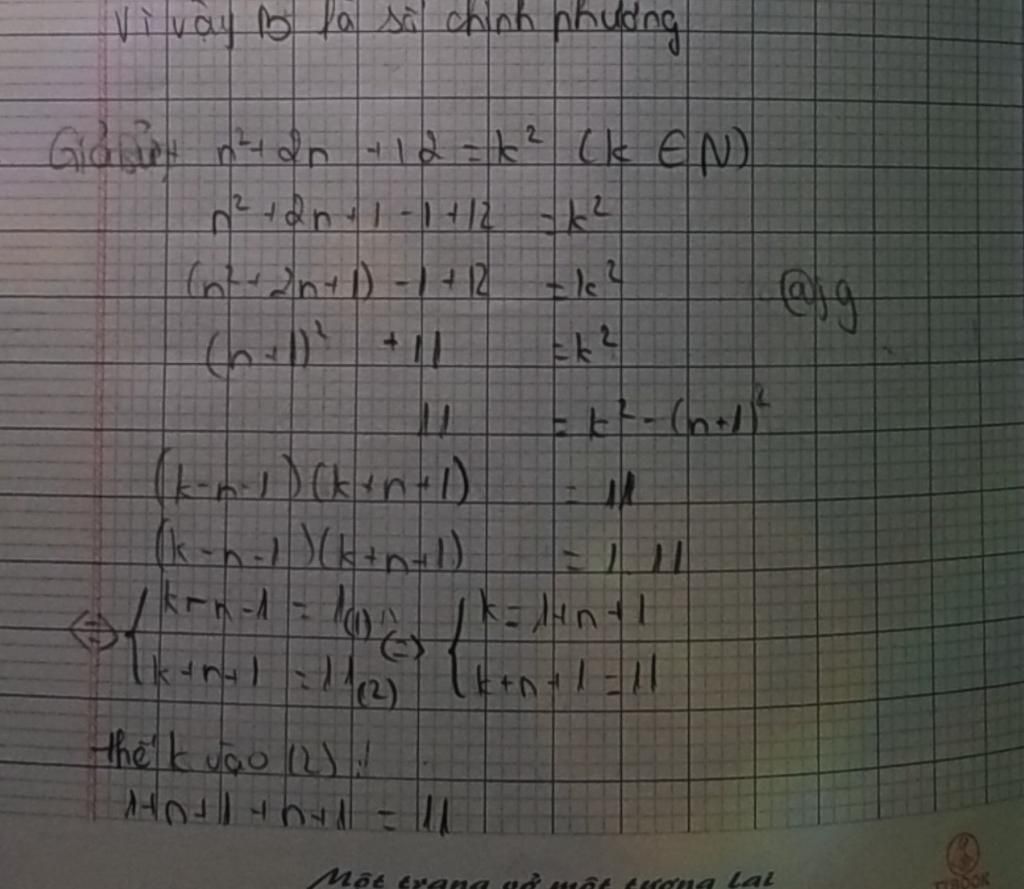 Vì vậy B là số chính phương
Giả sử n² + 2n + 12 = k² (k ∈ N)
n² + 2n + 1 - 1 + 12 = k²
(n² + 2n + 1) - 1 + 12 = k²
(n + 1)² + 11 = k²
11 = k² - (n + 1)²
(k - n - 1)(k + n + 1) = 11
(k - n - 1)(k + n + 1) = 1 11
⇔ { k - n - 1 = 1 (1) ⇔ { k = 1 + n + 1
k + n + 1 = 11 (2) k + n + 1 = 11
thế k vào (2):
1 + n + 1 + n + 1 = 11
Một trang vở một tương lai